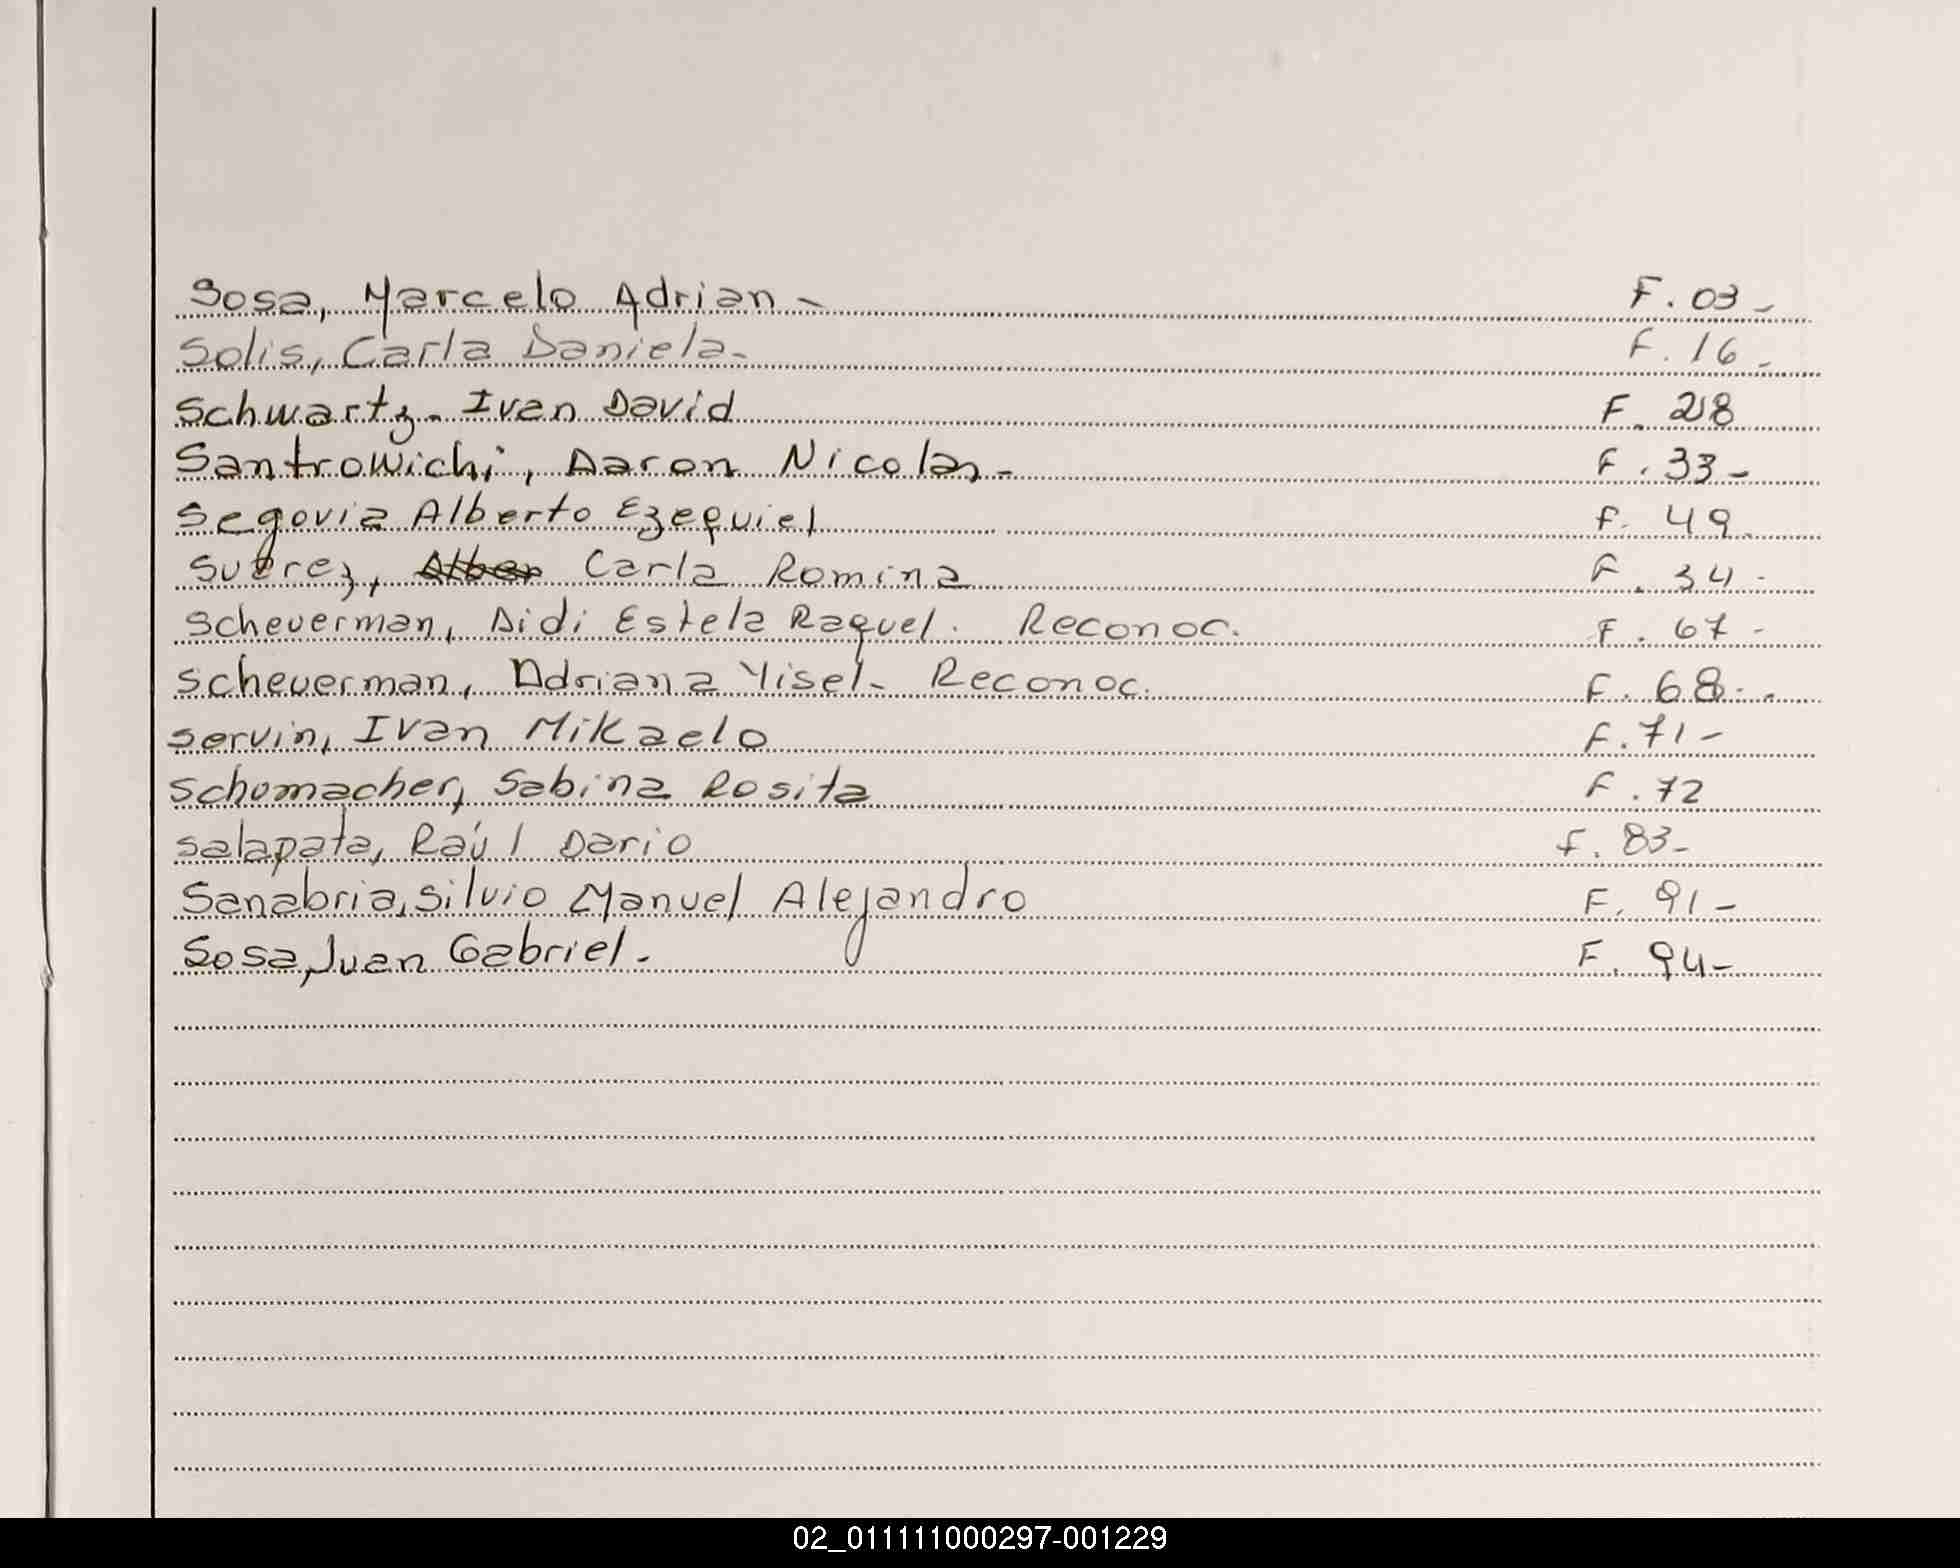 Sosa, Marcelo Adrian - F. 03 -
Solis, Carla Daniela - F. 16 -
Schwartz - Ivan David F. 28
Santrowichi, Aaron Nicolas - F. 33 -
Segovia Alberto Ezequiel F. 49
Suarez, Alber Carla Romina F. 34 -
Scheuerman, Didi Estela Raquel. Reconoc. F. 67 -
Scheuerman, Adriana Yisel - Reconoc. F. 68 -
Servin, Ivan Mikaelo F. 71 -
Schumacher, Sabina Rosita F. 72
Salapata, Raúl Dario F. 83 -
Sanabria, Silvio Manuel Alejandro F. 91 -
Sosa, Juan Gabriel. F. 94 -
02_011111000297-001229